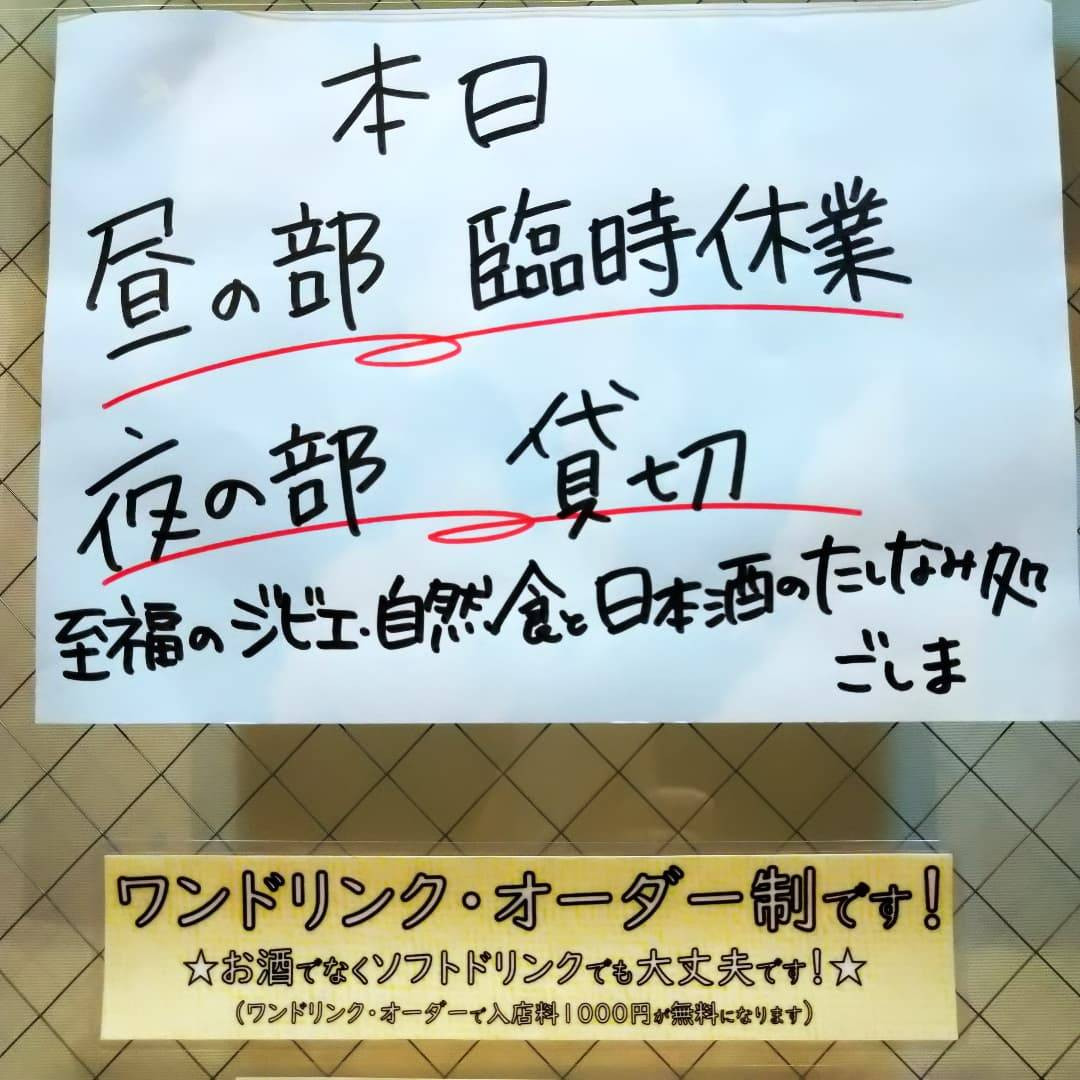 本日
昼の部 臨時休業
夜の部 貸切
至福のジビエ・自然食と日本酒のたしなみ処
ごしま
ワンドリンク・オーダー制です!
★お酒でなくソフトドリンクでも大丈夫です!★
(ワンドリンク・オーダーで入店料1000円が無料になります)